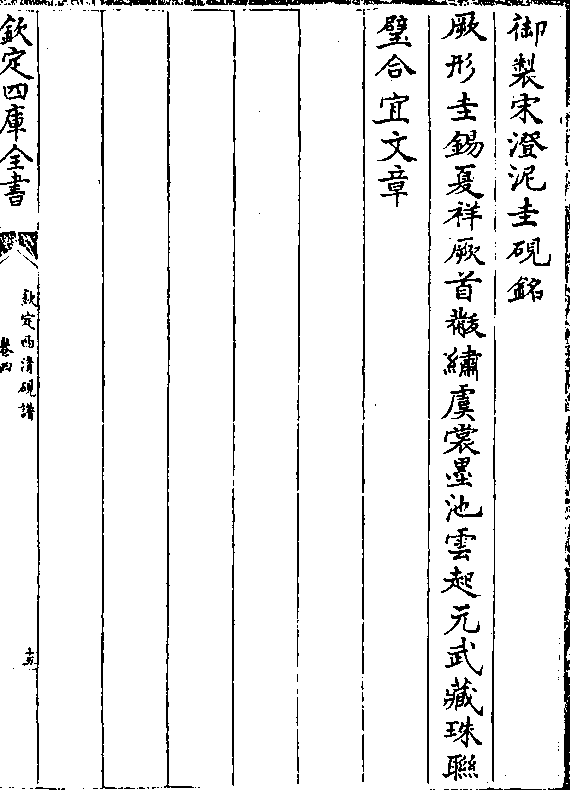 御製宋澄泥圭硯銘
厥形圭錫夏祥厥首黻繡虞裳墨池雲起元武藏珠聯
璧合宜文章
欽定四庫全書
欽定西清硯譜
卷四
十五